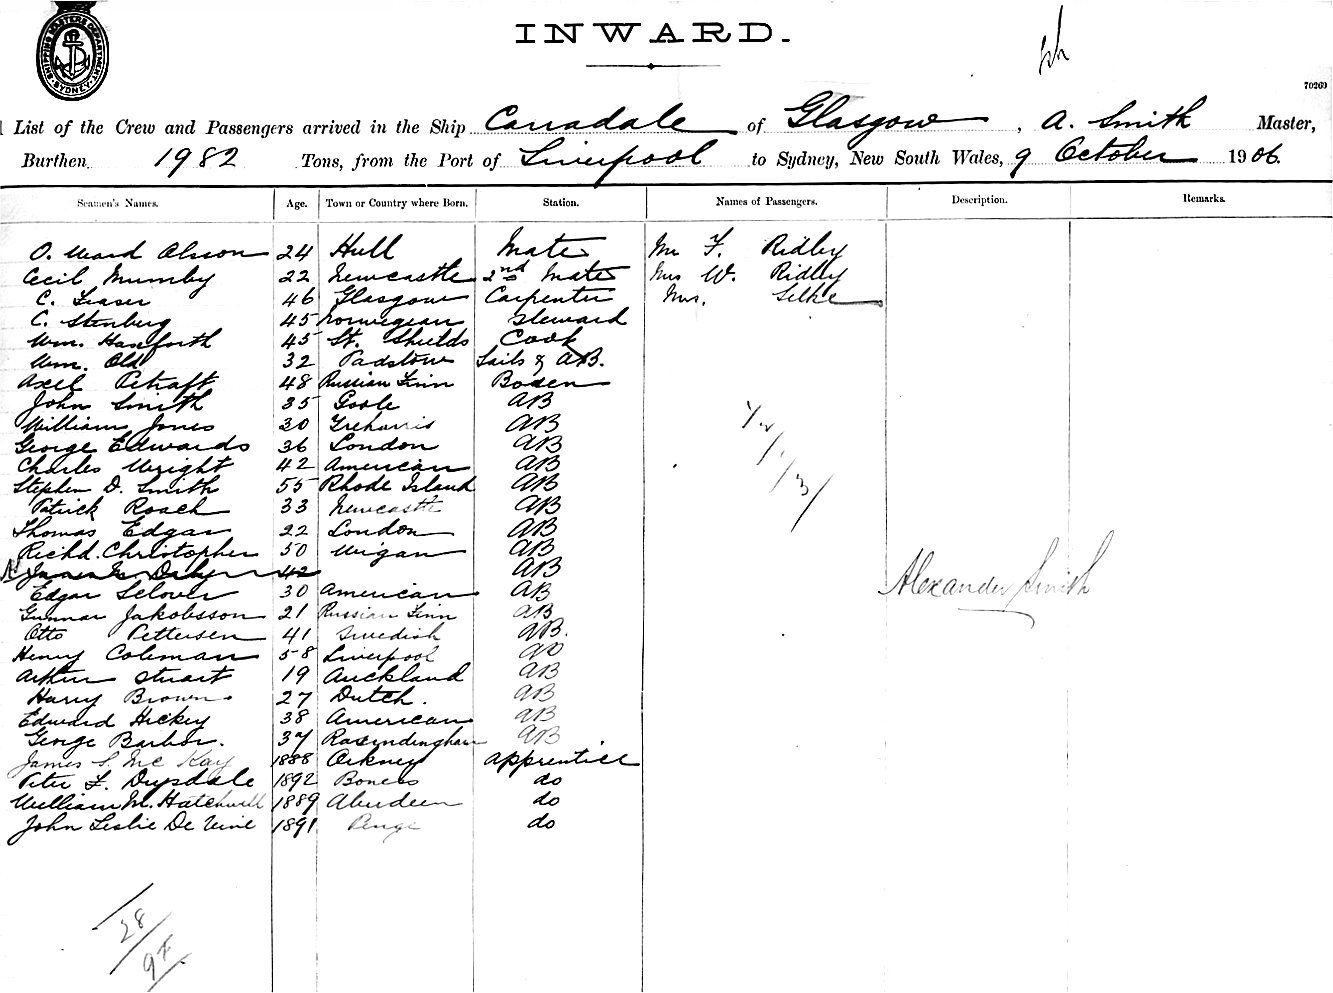 SHIPPING MASTERS DEPARTMENT. SYDNEY.
INWARD.
70269
List of the Crew and Passengers arrived in the Ship Carradale of Glasgow, A. Smith Master,
Burthen 1982 Tons, from the Port of Liverpool to Sydney, New South Wales, 9 October 1906.
Seamen's Names. Age. Town or Country where Born. Station. Names of Passengers. Description. Remarks.
O. Ward 24 Hull Mate Mr F. Ridley
Cecil Mumby 22 Newcastle 2nd Mate Mrs W. Ridley
C. Fraser 46 Glasgow Carpenter Mrs. Selke
C. Stenberg 45 Norwegian Steward
Wm. 45 St. Shields Cook
Wm. Old 32 Padstow Sails & AB.
Axel 48 Russian Finn Bosen
John Smith 35 Goole AB
William Jones 30 Treharris AB
George Edwards 36 London AB
Charles Wright 42 American AB
Stephen D. Smith 55 Rhode Island AB
Patrick Roach 33 Newcastle AB
Thomas Edgar 22 London AB
Richd. Christopher 50 Wigan AB
42 AB
Edgar Selover 30 American AB
Gunnar Jakobsson 21 Russian Finn AB
Otto Pettersen 41 Swedish AB.
Henry Coleman 58 Liverpool AB
Arthur Stuart 19 Auckland AB
Harry Brown 27 Dutch. AB
Edward Hickey 38 American AB
George Barber. 37 AB
James S. McKay 1888 Orkney Apprentice
Peter F. Drysdale 1892 Boness do
William M. 1889 Aberdeen do
John Leslie De Vine 1891 Penge do
Alexander Smith
28